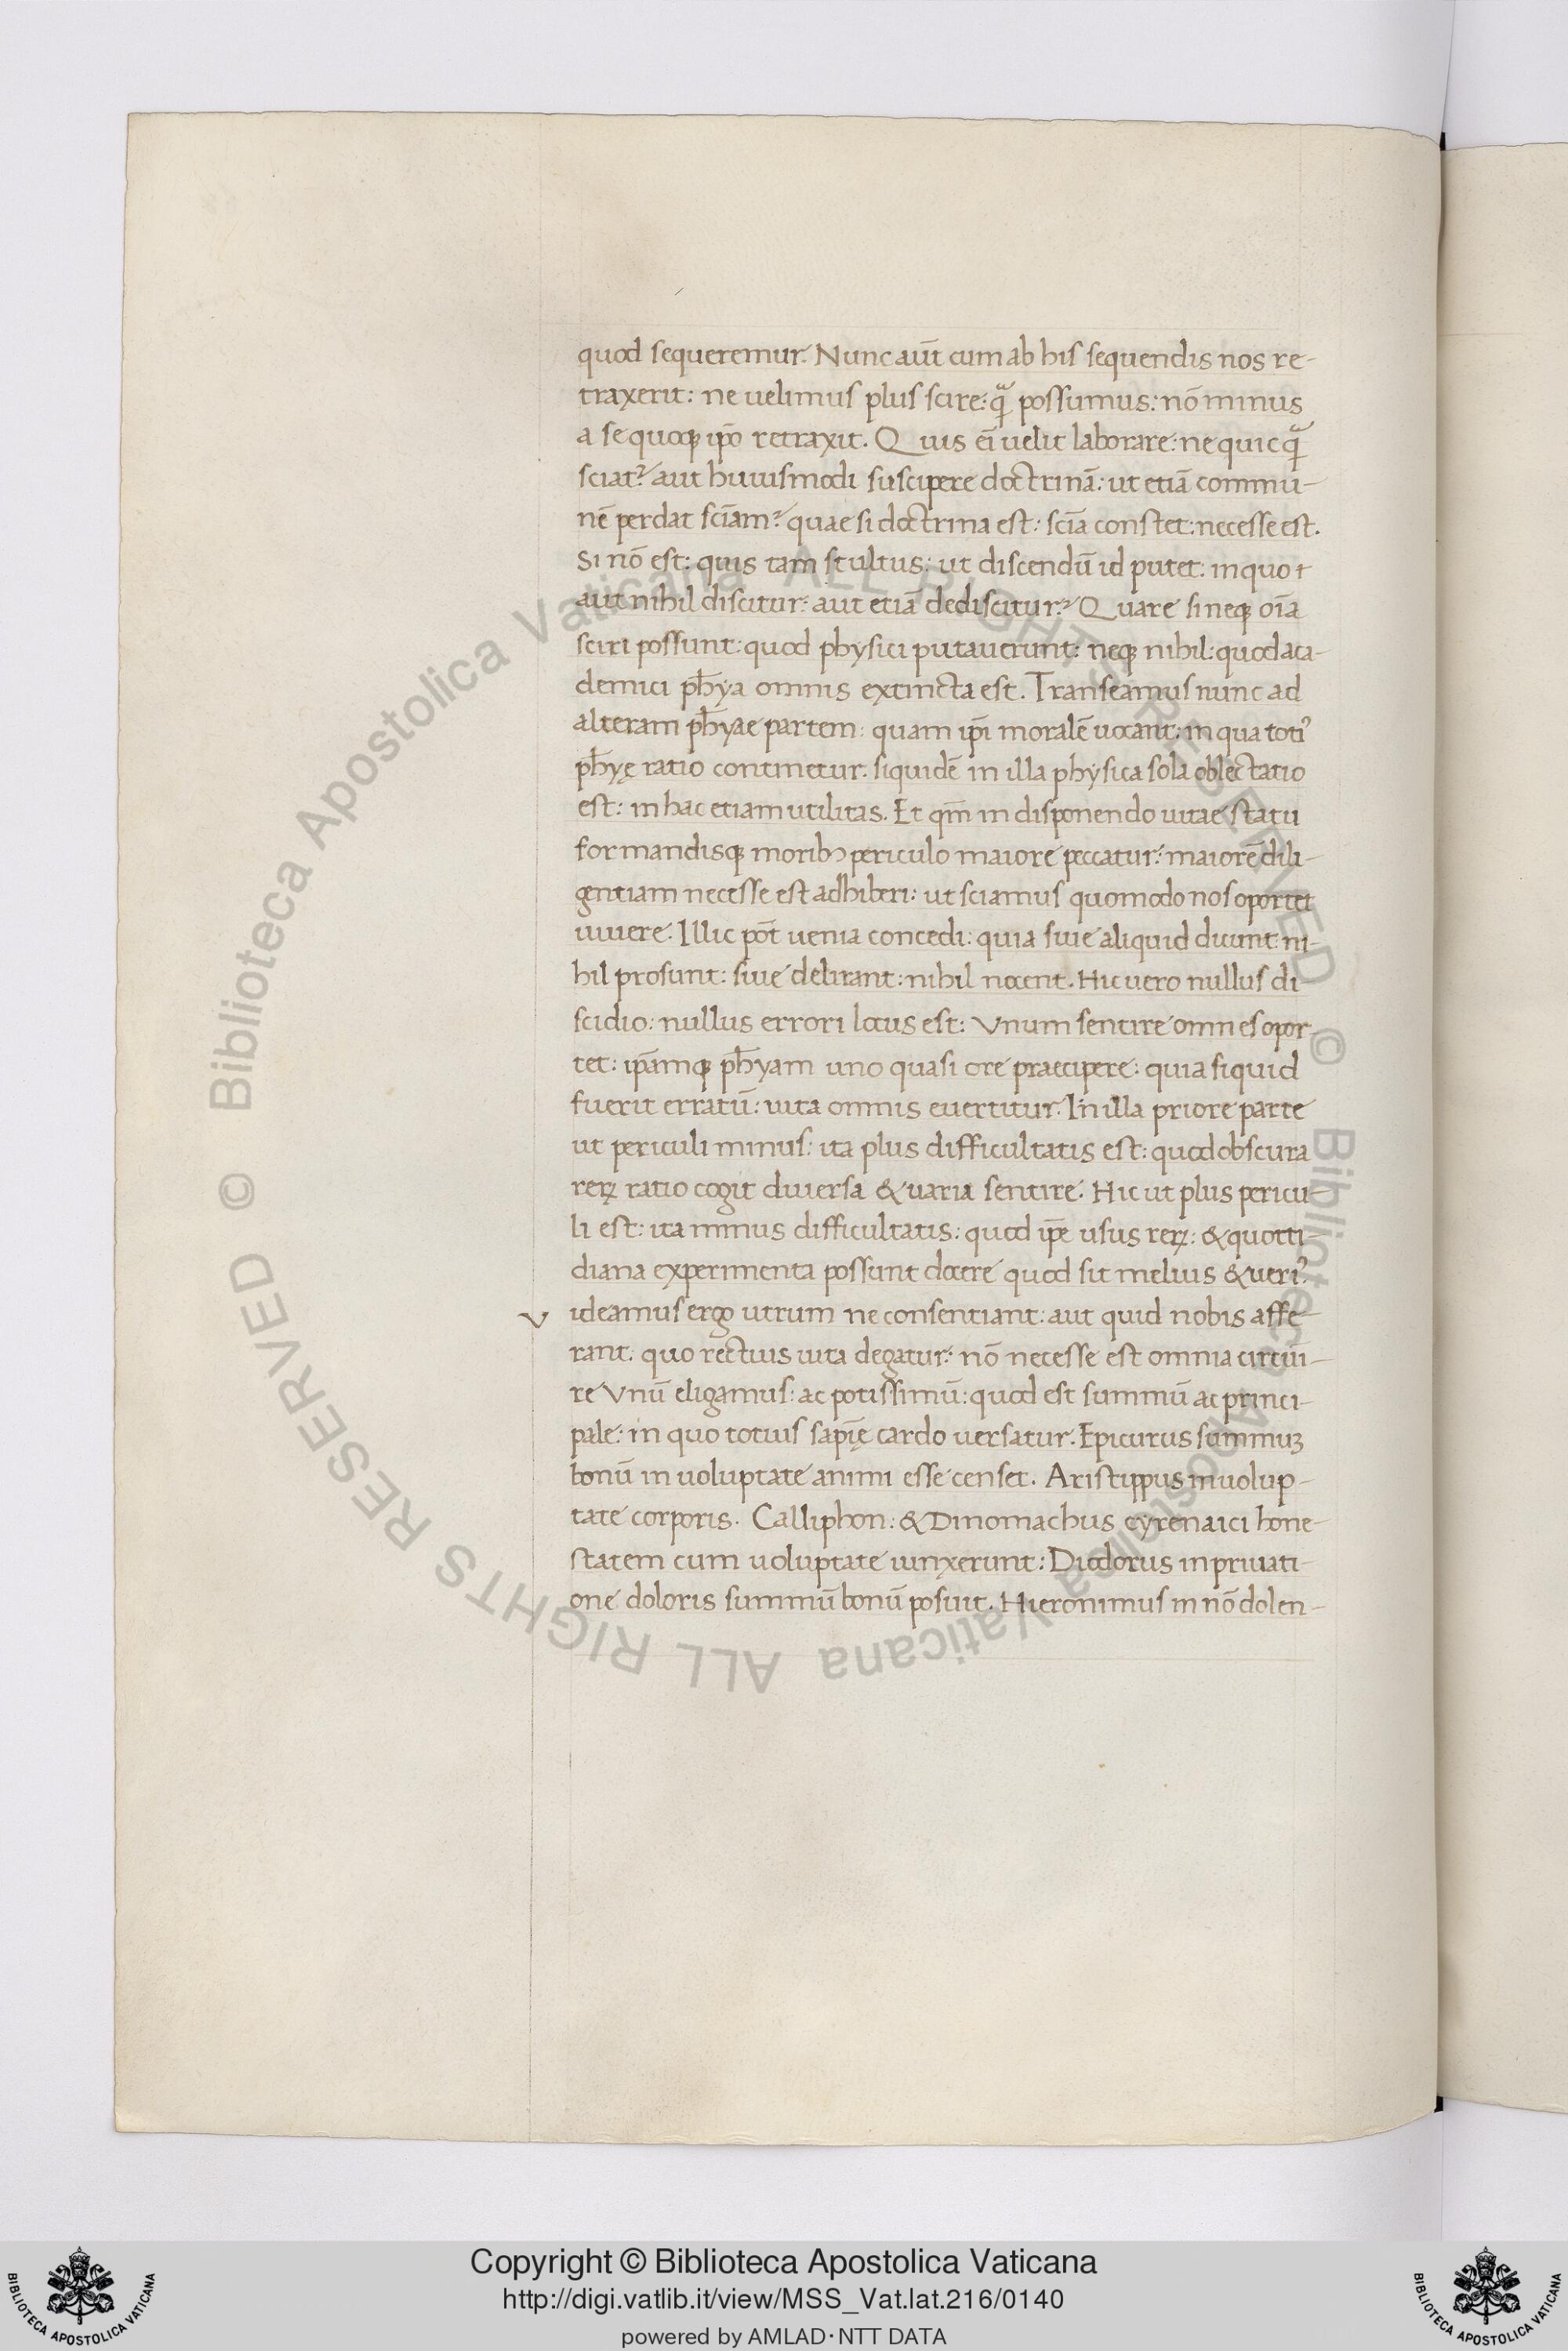 quod sequeremur. Nunc aūt cum ab his sequendis nos re-
traxerit: ne uelimus plus scire: qꝫ possumus: nō minus
a se quoqꝫ ip̄o retraxit. Quis ēi uelit laborare: ne quicqꝫ
sciat? aut huiusmodi suscipere doctrinā: ut etiā commu-
nē perdat sc̄iam? quae si doctrina est: sc̄ia constet: necesse est.
Si nō est: quis tam stultus: ut discendū id putet: in quo
aut nihil discitur: aut etiā dediscitur? Quare si neqꝫ oīa
sciri possunt: quod physici putauerunt: neqꝫ nihil: quod aca-
demici ph̄ya omnis extincta est. Transeamus nunc ad
alteram ph̄yae partem: quam ip̄i moralē uocant: in qua toti⁹
ph̄yę ratio continetur. siquidē in illa physica sola oblectatio
est: in hac etiam utilitas. Et qm̄ in disponendo uitae statu
formandisqꝫ moribꝫ periculo maiore peccatur: maiorē dili-
gentiam necesse est adhiberi: ut sciamus quomodo nos oportet
uiuere. Illic pōt uenia concedi: quia siue aliquid dicunt: ni-
hil prosunt: siue delirant: nihil nocent. Hic uero nullus di
scidio: nullus errori locus est: Vnum sentire omnes opor-
tet: ip̄amqꝫ ph̄yam uno quasi ore praecipere: quia siquid
fuerit erratū: uita omnis euertitur. In illa priore parte
ut periculi minus: ita plus difficultatis est: quod obscura
reꝝ ratio cogit diuersa & uaria sentire. Hic ut plus pericu-
li est: ita minus difficultatis: quod ip̄e usus reꝝ: & quotti-
diana experimenta possunt docere quod sit melius & ueri⁹.
V ideamus ergo utrum ne consentiant: aut quid nobis affe-
rant: quo rectius uita degatur: nō necesse est omnia circui-
re Vnū eligamus: ac potissimū: quod est summū ac princi-
pale: in quo totius sapīę cardo uersatur. Epicurus summuꝫ
bonū in uoluptate animi esse censet. Aristippus in uolup-
tate corporis. Calliphon: & Dinomachus cyrenaici hone-
statem cum uoluptate iunxerunt: Diodorus in priuati-
one doloris summū bonū posuit. Hieronimus in nō dolen-
Copyright © Biblioteca Apostolica Vaticana
http://digi.vatlib.it/view/MSS_Vat.lat.216/0140
powered by AMLAD·NTT DATA
BIBLIOTECA APOSTOLICA VATICANA
BIBLIOTECA APOSTOLICA VATICANA
© Biblioteca Apostolica Vaticana ALL RIGHTS RESERVED
© Biblioteca Apostolica Vaticana ALL RIGHTS RESERVED